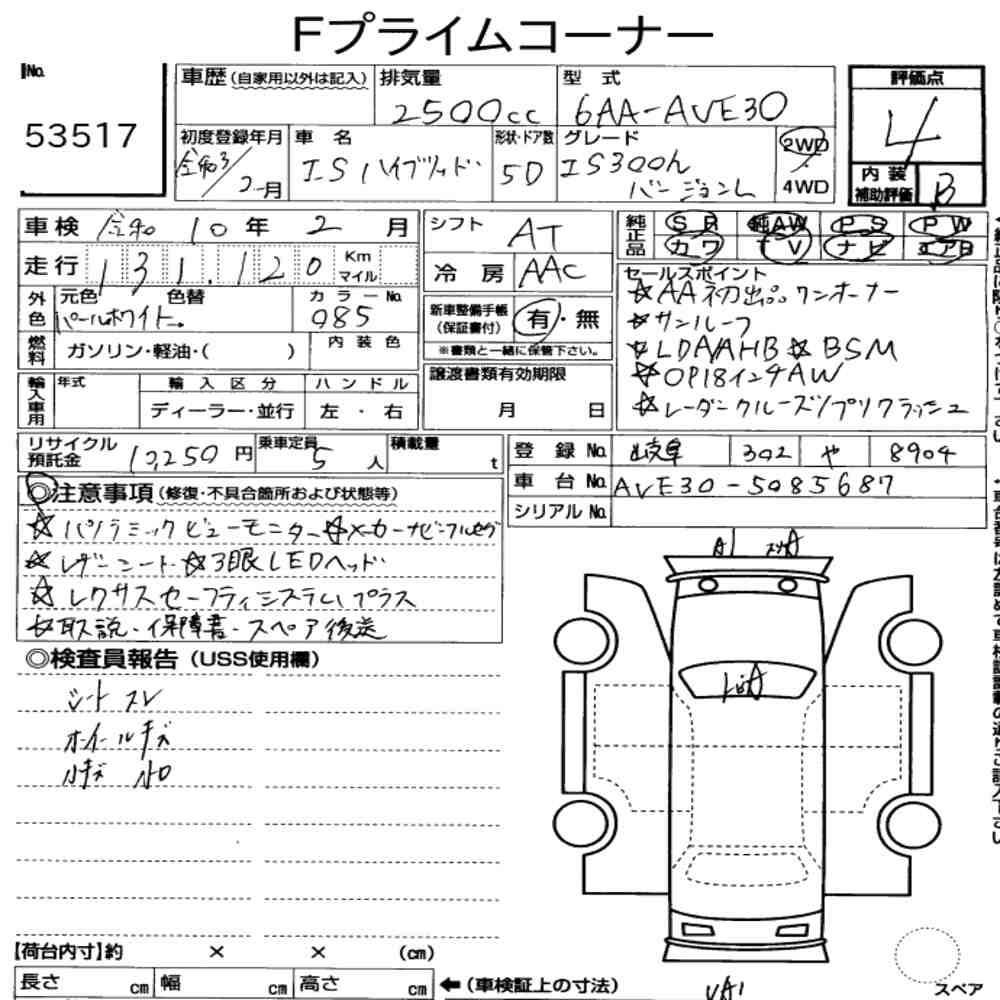 Fプライムコーナー
No.
53517
車歴(自家用以外は記入)
排気量
2500cc
型 式
6AA-AVE30
評価点
4
初度登録年月
令和3/2月
車 名
ISハイブリッド
形状・ドア数
5D
グレード
IS300h
バージョンL
2WD
4WD
内 装
補助評価
B
車検 令和 10年 2 月
走行 131,120 Km マイル
シフト AT
冷 房 AAC
純正品
SR 純AW PS PW
カワ TV ナビ エアB
セールスポイント
☆AA初出品。ワンオーナー
☆サンルーフ
☆LDA/AHB ☆BSM
☆OP18インチAW
☆レーダークルーズ/プリクラッシュ
外色
元色 色替
パールホワイト
カラーNo.
085
新車整備手帳
(保証書付)
有・無
※書類と一緒に保管下さい。
燃料
ガソリン・軽油・( )
内 装 色
譲渡書類有効期限
月 日
輸入車用
年式
輸 入 区 分
ディーラー・並行
ハ ン ド ル
左 ・ 右
リサイクル
預託金
10,250 円
乗車定員
5 人
積載量
t
登 録 No. 岐阜 302 や 8904
車 台 No. AVE30-5085687
シリアル No.
◎注意事項(修復・不具合箇所および状態等)
☆パノラミックビューモニター ☆メーカーナビ・フルセグ
☆レザーシート ☆3眼LEDヘッド
☆レクサスセーフティシステムプラス
☆取説・保障書・スペア後送
◎検査員報告(USS使用欄)
シート スレ
ホイールキズ
小キズ 小凹
A1
【荷台内寸】約 × × (cm)
長さ cm 幅 cm 高さ cm
←(車検証上の寸法)
スペア